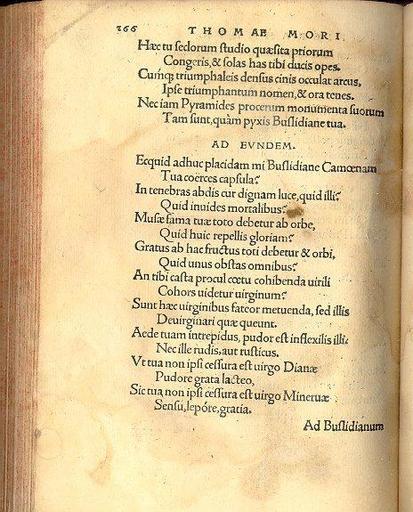 266 THOMAE MORI.
Hæc tu sedorum studio quæsita priorum
Congeris, & solas has tibi ducis opes.
Cumq; triumphaleis densus cinis occulat arcus,
Ipse triumphantum nomen, & ora tenes.
Nec iam Pyramides procerum monumenta suorum
Tam sunt, quàm pyxis Buslidiane tua.
AD EVNDEM.
Ecquid adhuc placidam mi Buslidiane Camœnam
Tua coërces capsula?
In tenebras abdis cur dignam luce, quid illi?
Quid inuides mortalibus?
Musæ fama tuæ toto debetur ab orbe,
Quid huic repellis gloriam?
Gratus ab hac fructus toti debetur & orbi,
Quid unus obstas omnibus?
An tibi casta procul cœtu cohibenda uirili
Cohors uidetur uirginum?
Sunt hæc uirginibus fateor metuenda, sed illis
Deuirginari quæ queunt.
Aede tuam intrepidus, pudor est inflexilis illi:
Nec ille rudis, aut rusticus.
Vt tua non ipsi cessura est uirgo Dianæ
Pudore grata lacteo,
Sic tua non ipsi cessura est uirgo Mineruæ
Sensu, lepóre, gratia.
Ad Buslidianum